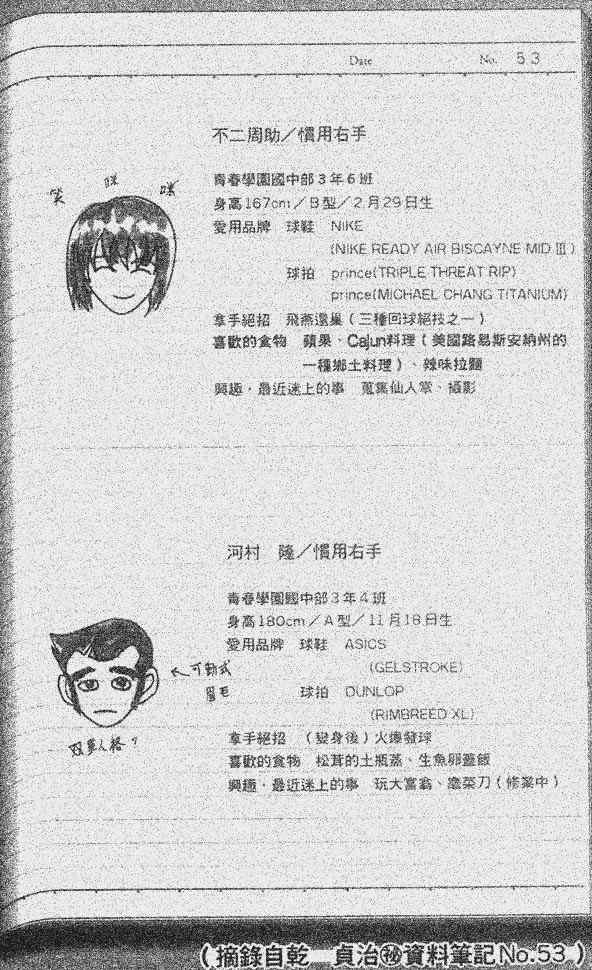 Date No. 53
不二周助／慣用右手
笑 咪 咪
青春學園國中部3年6班
身高167cm／B型／2月29日生
愛用品牌 球鞋 NIKE
(NIKE READY AIR BISCAYNE MID Ⅲ)
球拍 prince(TRIPLE THREAT RIP)
prince(MICHAEL CHANG TITANIUM)
拿手絕招 飛燕還巢（三種回球絕技之一）
喜歡的食物 蘋果、Cajun料理（美國路易斯安納州的
一種鄉土料理）、辣味拉麵
興趣・最近迷上的事 蒐集仙人掌、攝影
河村 隆／慣用右手
青春學園國中部3年4班
身高180cm／A型／11月18日生
愛用品牌 球鞋 ASICS
(GELSTROKE)
←可動式
眉毛
球拍 DUNLOP
(RIMBREED XL)
双重人格？
拿手絕招 （變身後）火爆發球
喜歡的食物 松茸的土瓶蒸、生魚卵蓋飯
興趣・最近迷上的事 玩大富翁、磨菜刀（修業中）
（摘錄自乾 貞治㊙資料筆記No.53）